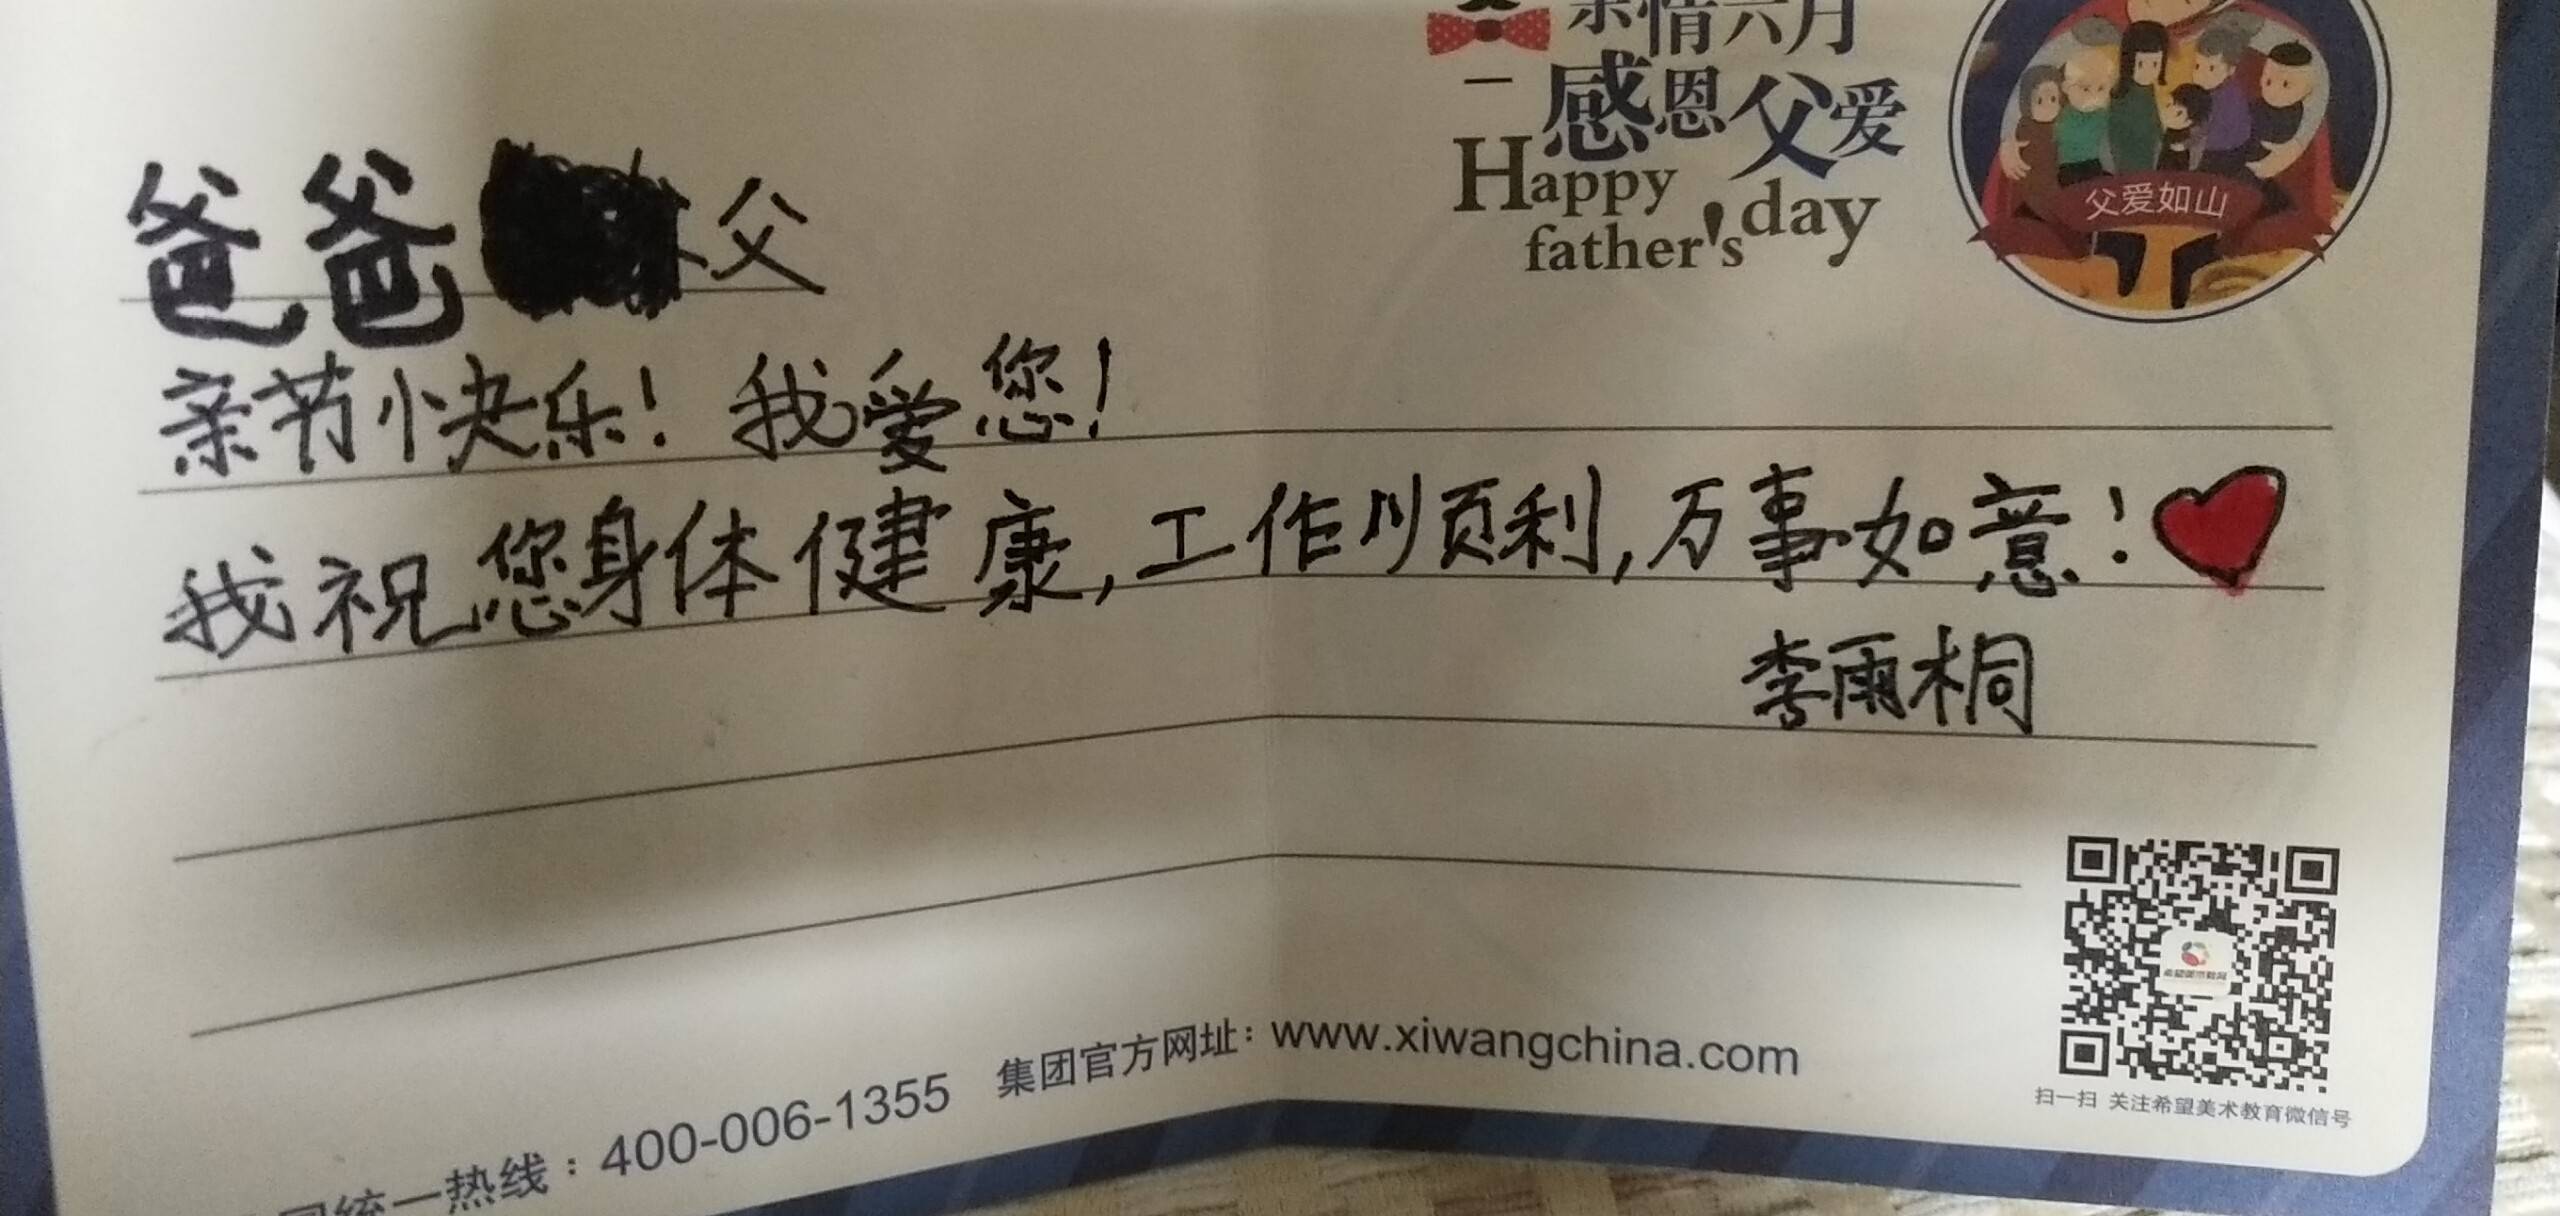 亲情六月
感恩父爱
Happy
father's day
父爱如山
爸爸 父
亲节快乐！我爱您！
我祝您身体健康，工作顺利，万事如意！
李雨桐
统一热线：400-006-1355 集团官方网址：www.xiwangchina.com
扫一扫 关注希望美术教育微信号